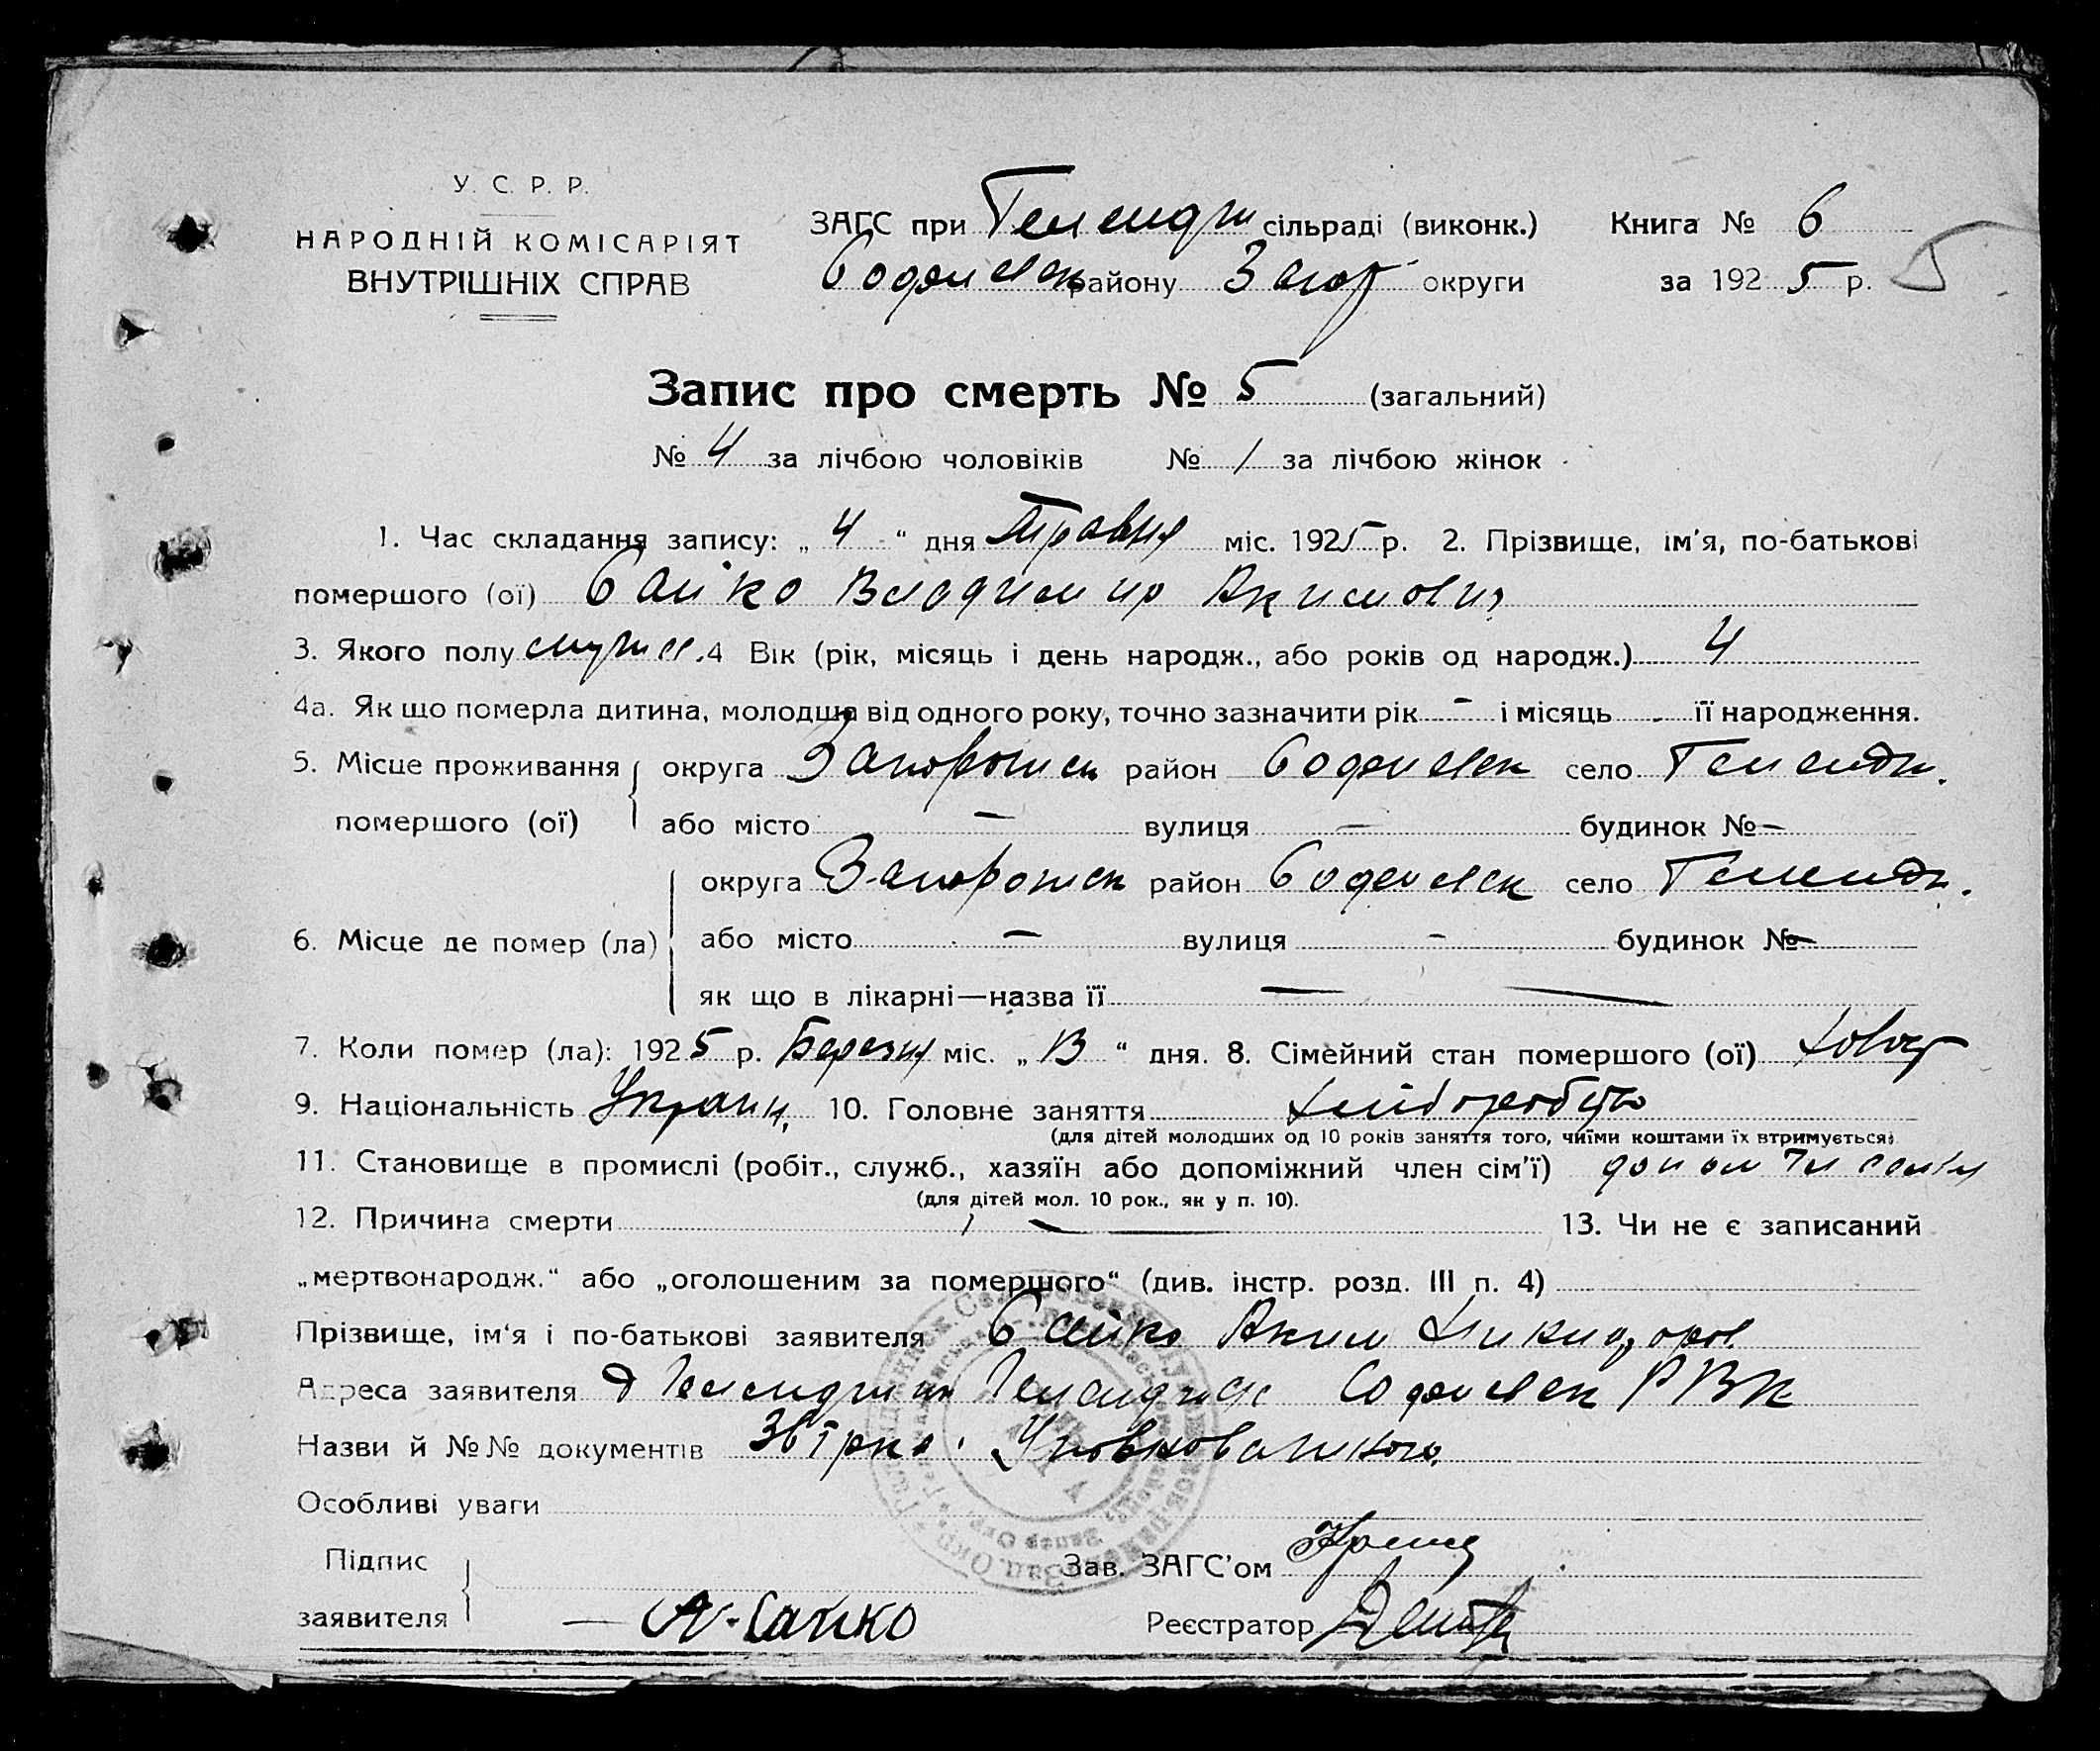 У. С. Р. Р.
НАРОДНІЙ КОМІСАРІЯТ
ВНУТРІШНІХ СПРАВ
ЗАГС при сільраді (виконк.) Книга № 6
району Запор округи за 1925 р. 5
Запис про смерть № 5 (загальний)
№ 4 за лічбою чоловіків № 1 за лічбою жінок
1. Час складання запису: „ 4 “ дня травня міс. 1925 р. 2. Прізвище, ім'я, по-батькові
помершого (ої) Сайко Владимир Акимович
3. Якого полу мужск. 4 Вік (рік, місяць і день народж., або років од народж.) 4
4а. Як що померла дитина, молодша від одного року, точно зазначити рік - і місяць - її народження.
5. Місце проживання округа Запорожск район село
помершого (ої) або місто — вулиця — будинок № —
округа Запорожск район село
6. Місце де помер (ла) або місто — вулиця - будинок № —
як що в лікарні—назва її — —
7. Коли помер (ла): 1925 р. Березня міс. „ 13 “ дня. 8. Сімейний стан помершого (ої)
9. Національність Украин. 10. Головне заняття хліборобство
(для дітей молодших од 10 років заняття того, чиїми коштами їх втримується)
11. Становище в промислі (робіт., служб., хазяїн або допоміжний член сім'ї) допом чл семьи
(для дітей мол. 10 рок., як у п. 10).
12. Причина смерти — 13. Чи не є записаний
„мертвонародж.“ або „оголошеним за помершого“ (див. інстр. розд. III п. 4)
Прізвище, ім'я і по-батькові заявителя Сайко Аким
Адреса заявителя РВК
Назви й №№ документів Уповноваженого
Особливі уваги
Підпис
заявителя — А. Сайко
Зав. ЗАГС'ом
Реєстратор